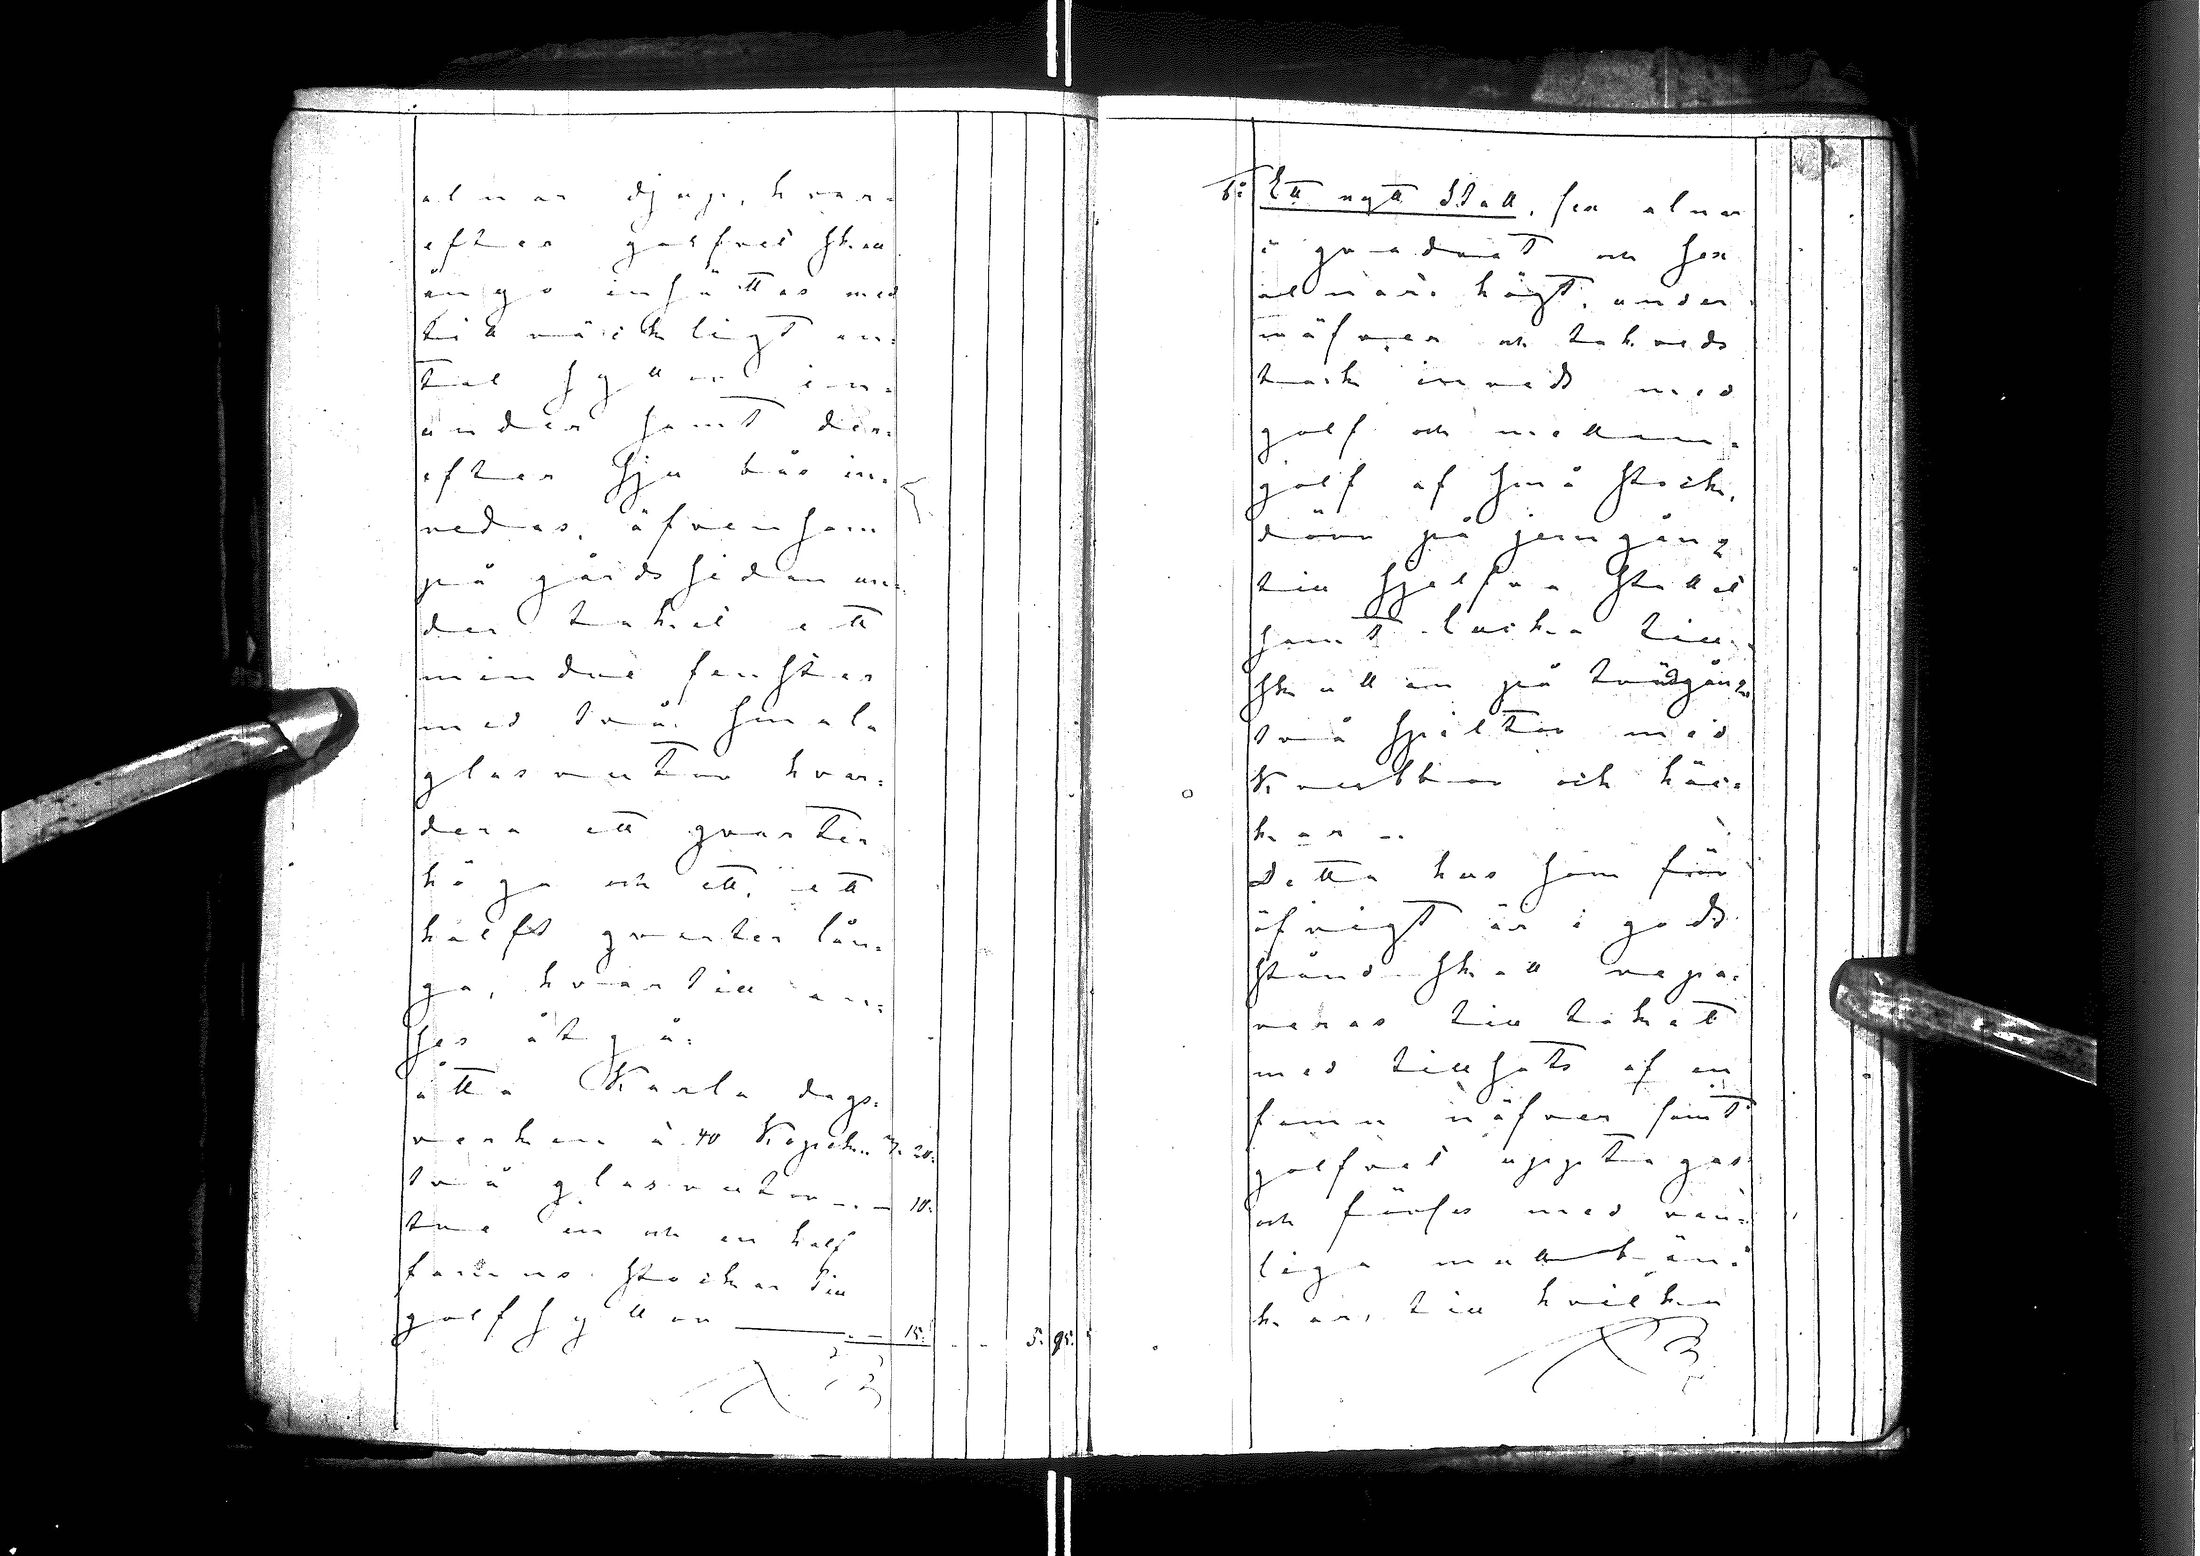 alnar djup, hvar-
efter golfvet skall
ånyo insättas med
tillräckligt an-
tal syllar in-
under samt der-
efter sju bås in-
redas, äfvensom
på gårdssidan un-
der taket ett
mindre fenster
med två smala
glasrutor hvar-
dera ett qvarter
höga och ett, ett
halft qvarter lån-
ga, hvartill an-
ses åtgå:
åtta Karla dags-
verken à 40 Kopek. 3. 20.
två glasrutor — . — 10.
tre in och en half
famns stockar till
golfsyllar — . — 15. 5. 95.
6: Ett nytt Stall, sex alnar
i qvadrat och sex
alnar högt, under
näfver och takveds
tack inredt med
golf och mellan-
golf af små stock,
dörr på jerngång
till sjelfva stallet
samt lucka till
skullen på trädgång
två spiltor med
Krubbor och häc-
kar ..
Detta hus som för
öfrigt är i godt
stånd skall repa-
reras till taket
med tillsats af en
famn näfver samt
golfvet upptagas
och förses med van-
liga mullbän-
kar, till hvilka